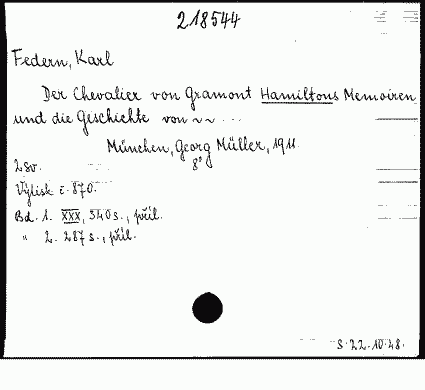 218544
Federn, Karl
Der Chevalier von Gramont Hamiltons Memoiren
und die Geschichte von ~~ ...
München, Georg Müller, 1911.
8°
2 sv.
Výtisk č. 870.
Bd. 1. XXX, 340 s., příl.
" 2. 287 s., příl.
S. 22.10.48.